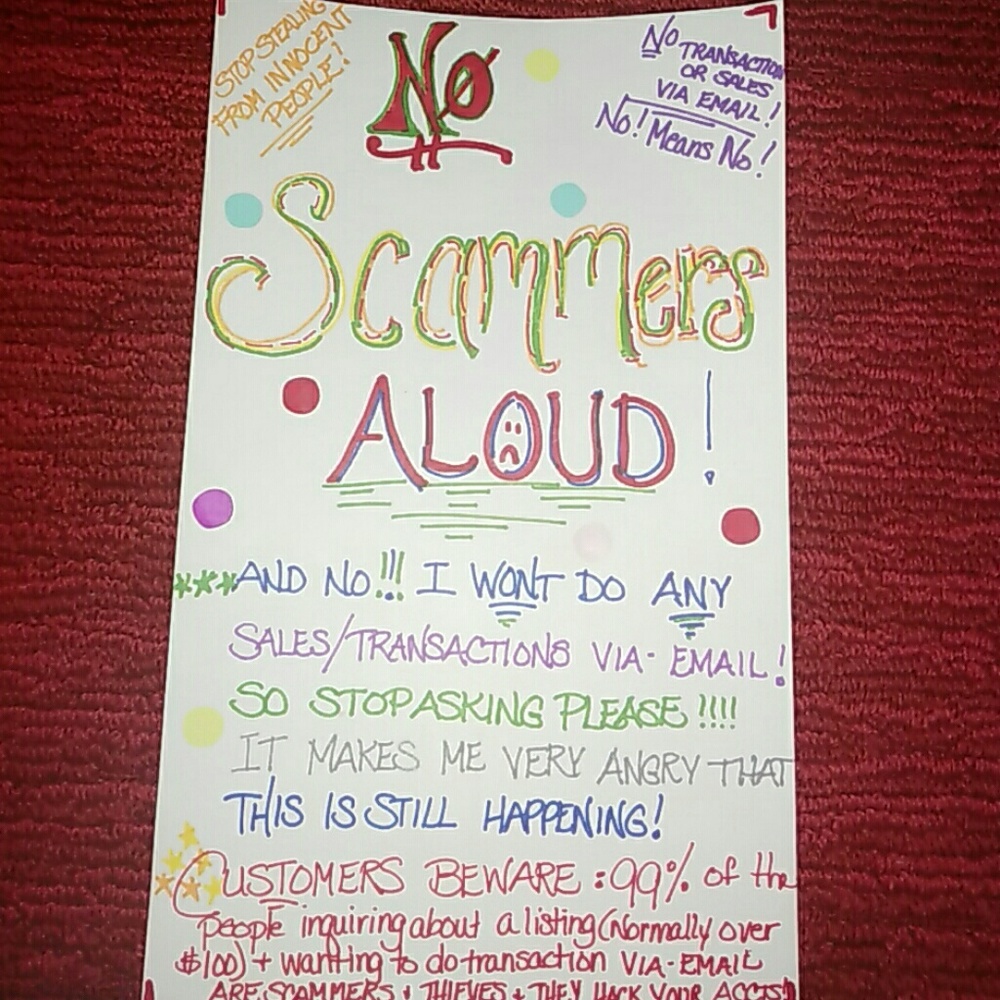 STOP STEALING
FROM INNOCENT
PEOPLE!
No
No TRANSACTION
OR SALES
VIA EMAIL!
No! Means No!
Scammers
ALOUD!
***AND NO!!! I WONT DO ANY
SALES/TRANSACTIONS VIA-EMAIL!
SO STOP ASKING PLEASE!!!!
IT MAKES ME VERY ANGRY THAT
THIS IS STILL HAPPENING!
CUSTOMERS BEWARE: 99% of the
people inquiring about a listing (Normally over
$100) + wanting to do transaction VIA-EMAIL
ARE SCAMMERS + THIEVES + THEY HACK YOUR ACCTS!